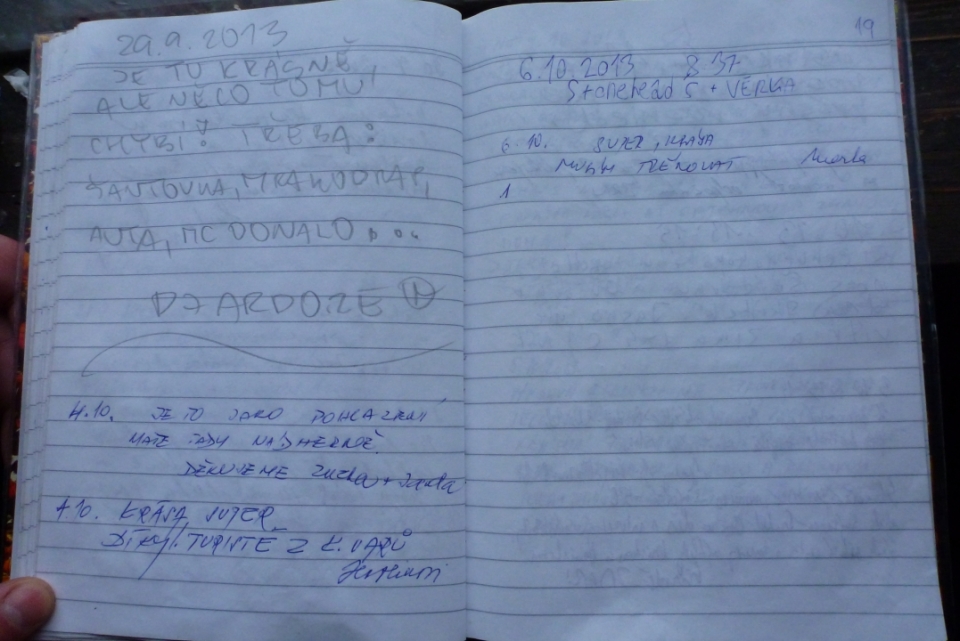 29.9.2013
JE TU KRÁSNĚ,
ALE NĚCO TOMU
CHYBÍ? TŘEBA:
AUTA, MC DONALD...
DJ ARDOZE
4.10. JE TO JAKO POHLAZENÍ
MÁTE TADY NÁDHERNĚ.
DĚKUJEME + Jarda
10. KRÁSA, SUPER
DÍKY. TURISTÉ Z K. VARŮ
19
6.10.2013 8 37
Stonehead S + VĚRKA
6. 10. SUPER, KRÁSA
MUSÍM TRÉNOVAT
1